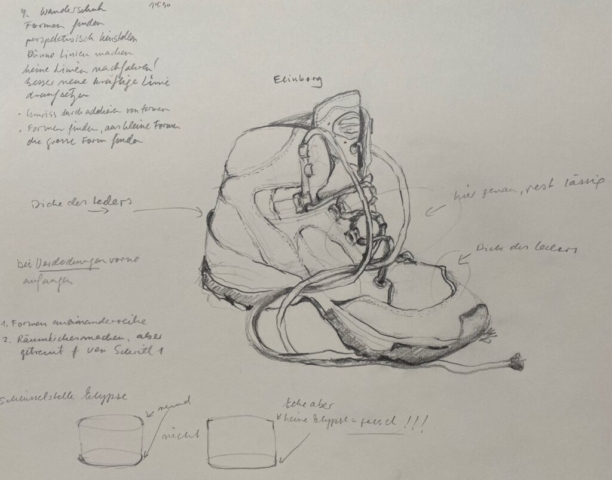 9. Wanderschuh
Formen finden
perspektivisch hinstellen
Dünne Linien machen
keine Linien nachfahren!
besser neue kräftige Linie
draufsetzen
- Umriss durch addieren von Formen
- Formen finden, aus kleine Formen
die grosse Form finden
Elinborg
Dicke des Leders
hier genau, rest lässig
Dicke des Leders
bei Überdeckungen vorne
anfangen
1. Formen aneinanderreihe
2. Räumlicher machen, aber
getrennt von Schritt 1
Ellypse
rund
nicht
Ecke aber
keine Elypse = falsch!!!